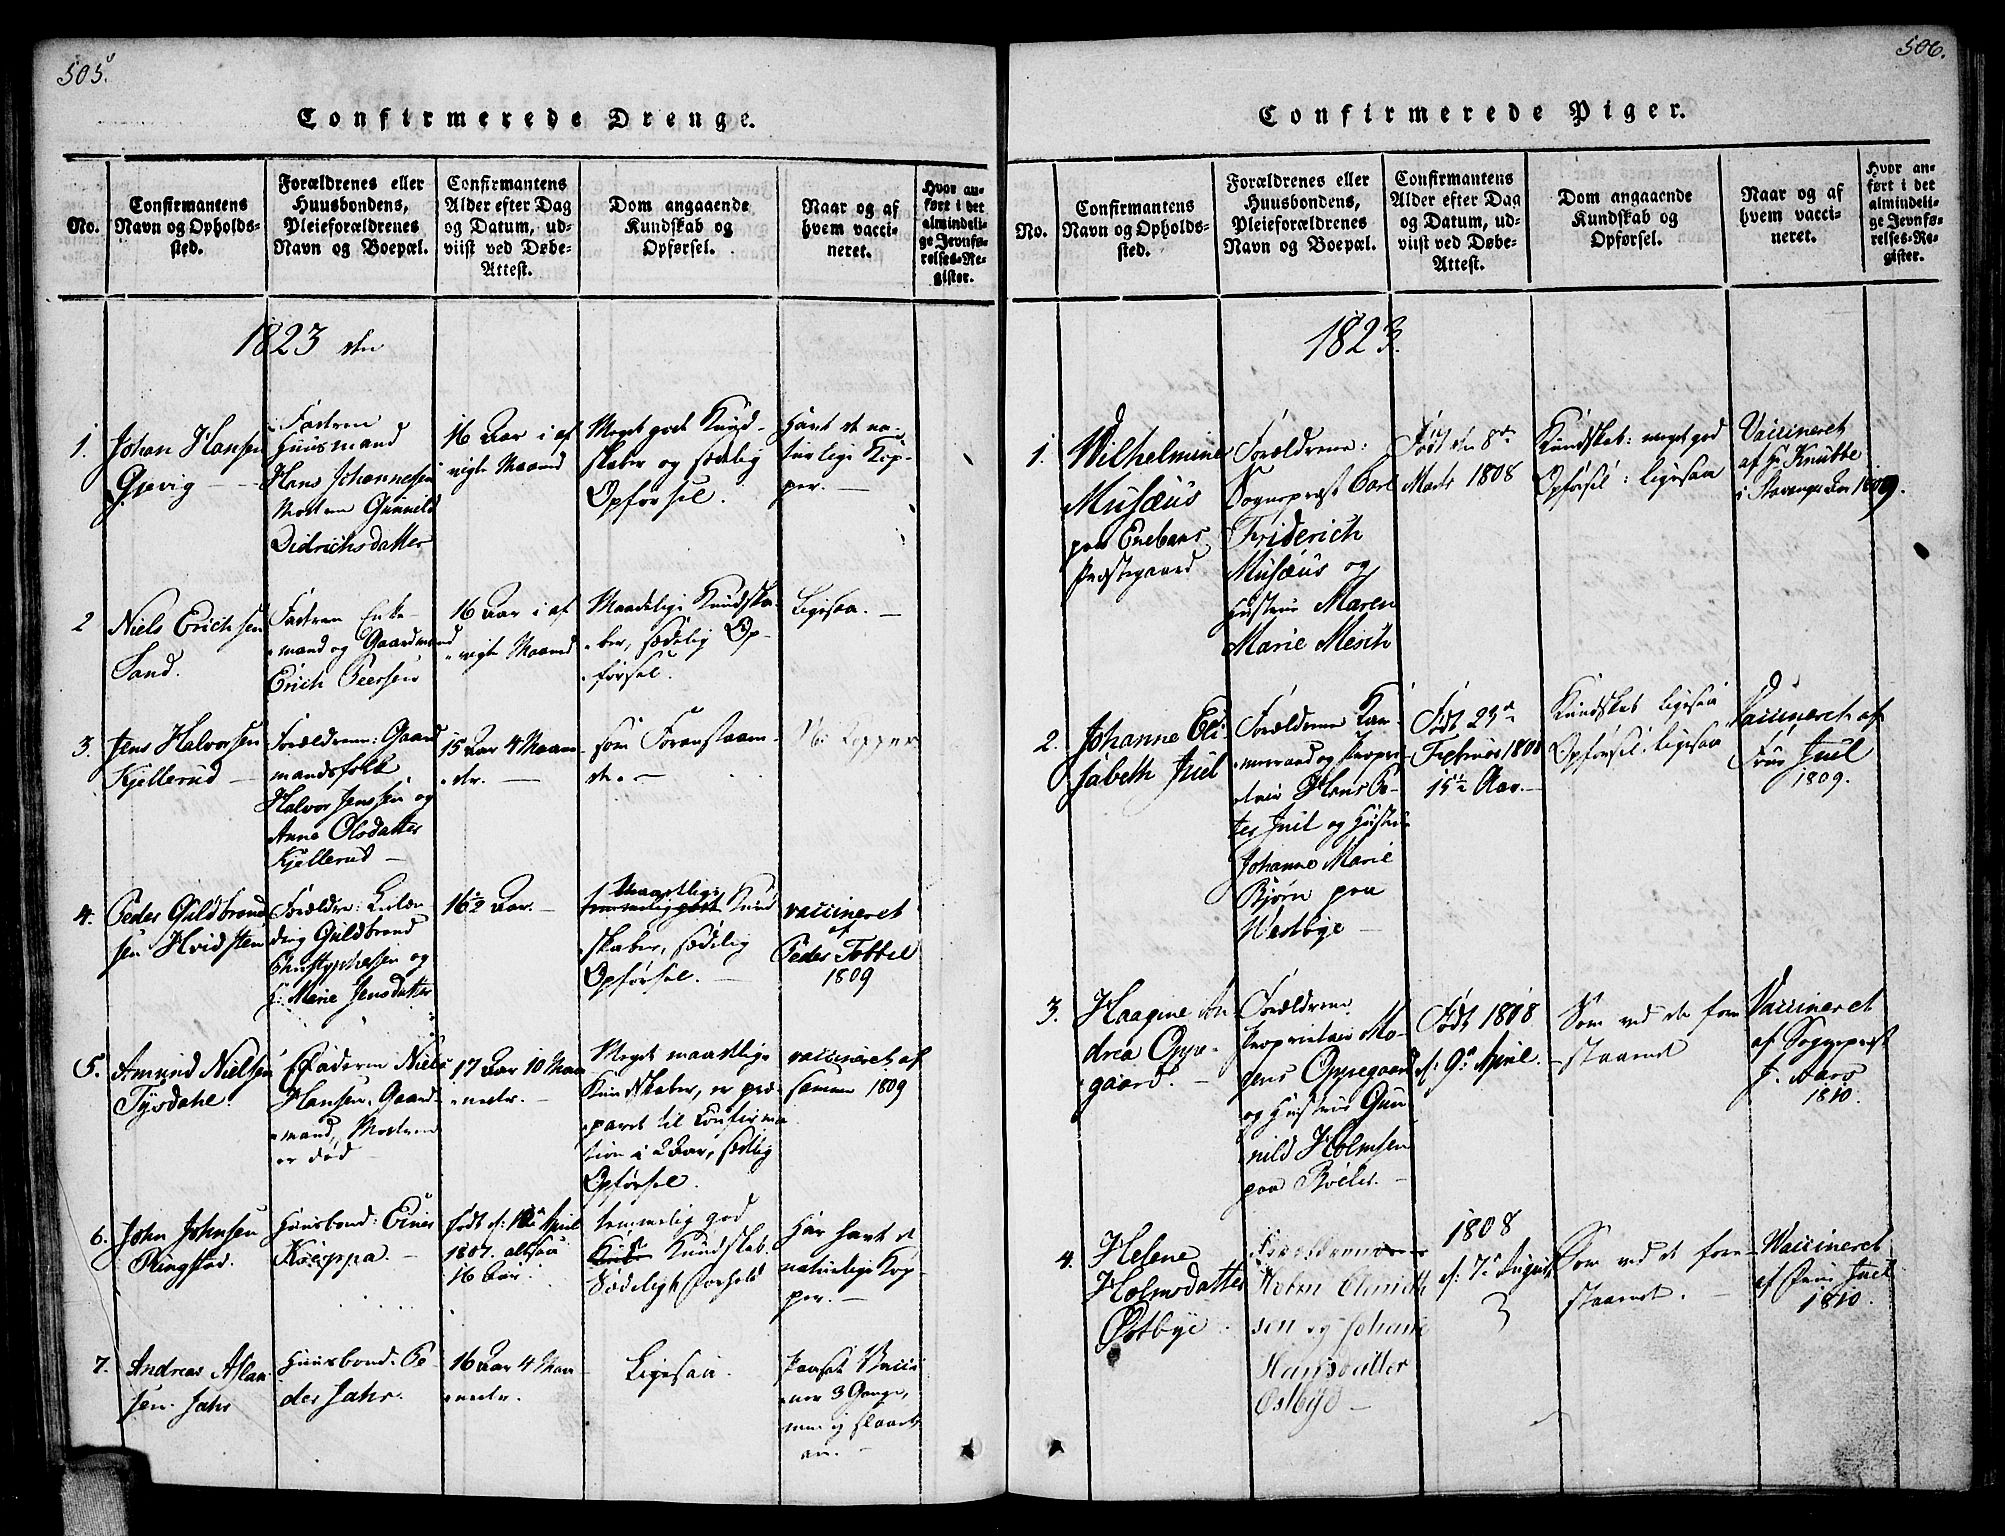 505.
Confirmerede Drenge.
No.
Confirmantens
Navn og Opholds-
sted.
Forældrenes eller
Huusbondens,
Pleieforældrenes
Navn og Boepæl.
Confirmantens
Alder efter Dag
og Datum, ud-
viist ved Døbe-
Attest.
Dom angaaende
Kundskab og
Opførsel.
Naar og af
hvem vacci-
neret.
Hvor an-
ført i det
almindeli-
ge Jevnfø-
relses-Re-
gister.
1823 den
1.
Johan Hansen
Gjøvig
Faderen
Huusmand
Hans Johannessen
Moderen Gunnild
Didrichsdatter
16 Aar i af
vigte Maaned
Meget gode Kund-
skaber og sædelig
Opførsel.
Havt de na-
turlige Kop-
per.
2
Niels Erichsen
Sand.
Faderen Enke-
mand og Gaardmand
Erich Peersen
16 Aar i af
vigte Maaned
Maadelige Kundska-
ber, sædelig Op-
førsel.
Ligesaa.
3.
Jens Halvorsen
Kjellerud
Forældrene: Gaard
mandsfolk
Halvor Jenssen og
Anne Olsdatter
Kjellerud
15 Aar 4 Maane-
der.
som Foranstaaen-
de.
Kopper
4.
Peder Guldbrand
sen Hvidsten
Forældre:
Guldbrand
Christophersen og
H: Marie Jensdatter
16½ Aar.
Maadelige
temmelig gode Kund
skaber, sædelig
Opførsel.
vaccineret
af
Peder Tottel
1809
5.
Amund Nielsen
Tysdahl.
Faderen Niels
Hansen, Gaard-
mand, Moderen
er død
17 Aar 10 Maa-
neder.
Meget maadelige
Kundskaber, er præ-
pareret til Confirma
tion i 2 Aar, sædelig
Opførsel.
vaccineret af
samme 1809
6.
John Johnsen
Ringstad.
Huusbond: Einer
Krippa
født d: April
1807. altsaa
16 Aar.
temmelig god
Kundskab.
Sædeligt Forhold
Har havt de
naturlige Kop-
per.
7.
Andreas Aslak
sen Jahr
Huusbond: Pe-
der Jahr.
16 Aar 4 Maa-
neder.
Ligesaa.
3 Gange,
men ej slaaet
an.
506.
Confirmerede Piger.
No.
Confirmantens
Navn og Opholds-
sted.
Forældrenes eller
Huusbondens,
Pleieforældrenes
Navn og Boepæl.
Confirmantens
Alder efter Dag
og Datum, ud-
viist ved Døbe-
Attest.
Dom angaaende
Kundskab og
Opførsel.
Naar og af
hvem vacci-
neret.
Hvor an-
ført i det
almindeli-
ge Jevnfø-
relses-Re-
gister.
1823.
1.
Wilhelmine
Musæus
paa Enebaks
Præstegaard
Forældrene:
Sognepræst Carl
Friderich
Musæus og
Hustrue Maren
Marie Mesch
Født den 8de
Marts 1808
Kundskab: meget god
Opførsel: ligesaa
Vaccineret
af H. Knutte
i Stavanger Aar 1809.
2.
Johanne Eli-
sabeth Juel
Forældrene Kam-
merraad og Proprie-
tair Hans Pe-
ter Juel og Hustrue
Johanne Marie
Bjørn paa
Westbye
Født 23de
Februar 1808
15½ Aar.
Kundskab ligesaa
Opførsel: ligesaa
Vaccineret af
Frue Juel
1809.
3.
Haagine An
drea Oppe-
gaard.
Forældrene
Proprietair Mo-
gens Oppegaard
og Hustrue Gun
nild Holmsen
paa Bøeler.
Født 1808
d: 9de April.
Som ved de foran
staaende
Vaccineret
af Sogneprest
J. Aars
1810.
4.
Helene
Holmsdatter
Østbye
Forældrene
Holm
sen og Johane
Hansdatter
Østbye
1808
d: 7de August
Som ved de foran-
staaende.
Vaccineret
af Frue Juel
1810.